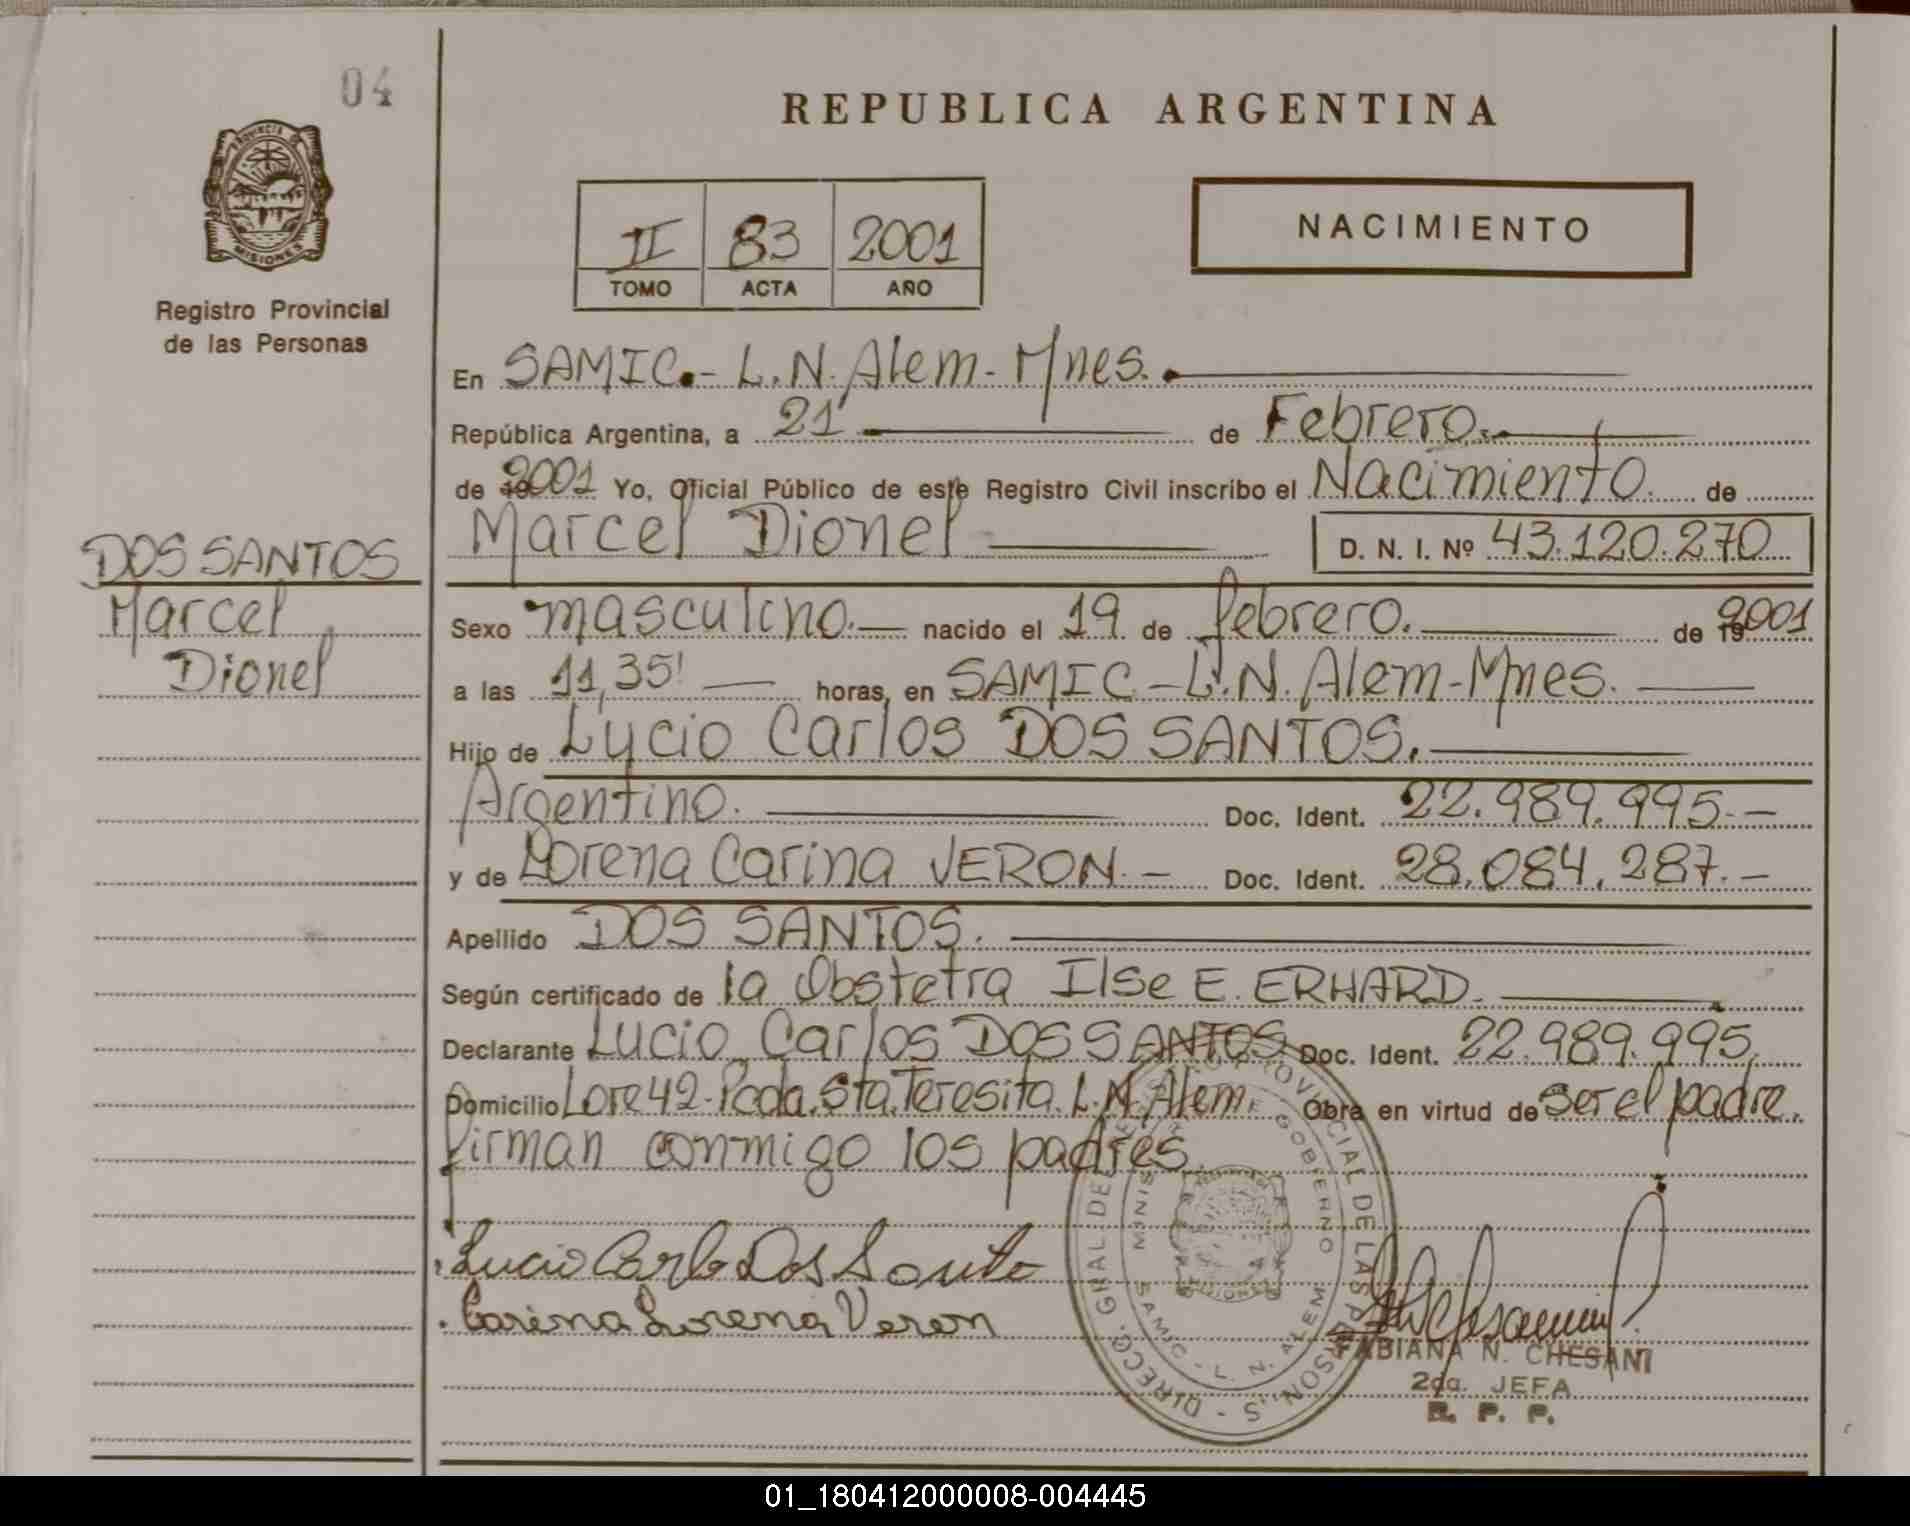 04
REPUBLICA ARGENTINA
PROVINCIA DE
MISIONES
Registro Provincial
de las Personas
II 83 2001
TOMO ACTA AÑO
NACIMIENTO
En SAMIC.- L.N. Alem - Mnes.
República Argentina, a 21 de Febrero.
de 2001 Yo, Oficial Público de este Registro Civil inscribo el Nacimiento de
Marcel Dionel D. N. I. Nº 43.120.270
DOS SANTOS
Marcel
Dionel
Sexo masculino. nacido el 19 de febrero. de 2001
a las 11,35' horas, en SAMIC - L.N. Alem - Mnes.
Hijo de Lucio Carlos DOS SANTOS.
Argentino. Doc. Ident. 22.989.995.-
y de Lorena Carina VERON. - Doc. Ident. 28.084.287.-
Apellido DOS SANTOS.
Según certificado de la Obstetra Ilse E. ERHARD.
Declarante Lucio Carlos DOS SANTOS Doc. Ident. 22.989.995.
Domicilio Lote 42 - Pcda. Sta. Teresita. L.N. Alem. Obra en virtud de ser el padre.
firman conmigo los padres
Lucio Carlos Dos Santos
Carina Lorena Veron
DIRECC. GRAL. DEL REGISTRO PROVINCIAL DE LAS PERSONAS
GOBIERNO
SAMIC - L. N. ALEM
MISIONES
FABIANA N. CHESANI
2da. JEFA
R. P. P.
01_180412000008-004445